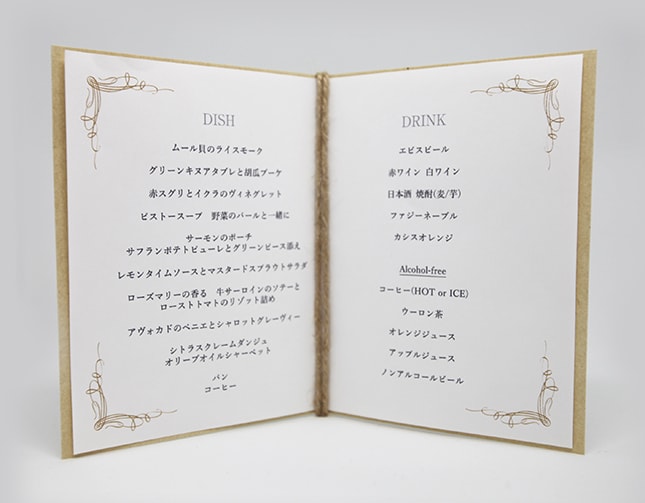 DISH
ムール貝のライスモーク
グリーンキヌアタブレと胡瓜ブーケ
赤スグリとイクラのヴィネグレット
ピストースープ　野菜のパールと一緒に
サーモンのポーチ
サフランポテトピューレとグリーンピース添え
レモンタイムソースとマスタードスプラウトサラダ
ローズマリーの香る　牛サーロインのソテーと
ローストトマトのリゾット詰め
アヴォカドのベニエとシャロットグレーヴィー
シトラスクレームダンジュ
オリーブオイルシャーベット
パン
コーヒー
DRINK
エビスビール
赤ワイン 白ワイン
日本酒 焼酎(麦/芋)
ファジーネーブル
カシスオレンジ
Alcohol-free
コーヒー(HOT or ICE)
ウーロン茶
オレンジジュース
アップルジュース
ノンアルコールビール